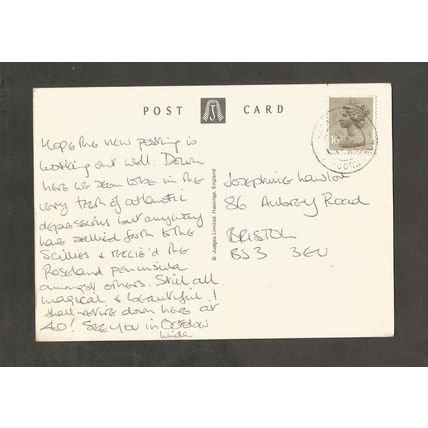 POST CARD
Hope the new posting is
working out well. Down
here we seem to be in the
very teeth of atlantic
depressions but anyway
have sallied forth to the
Scillies & the
Roseland peninsula
amongst others. Still all
magical & beautiful. I
shall retire down here at
40! See you in October
© Judges Limited, Hastings, England
Josephine Lawlor
86 Aubrey Road
BRISTOL
BS3 3EU